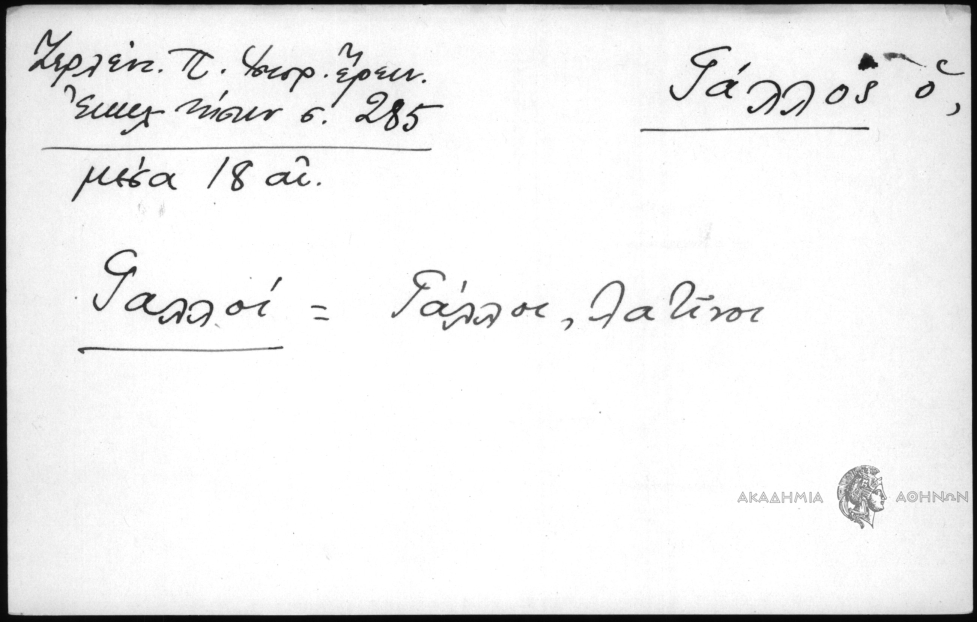 Ζερλέντ. Π. Ἱστορ. Ἔρευν.
Ἐκκλ νήσων σ. 285
μέσα 18 αἰ.
Γάλλος ὁ,
Γαλλοί = Γάλλοι, λατῖνοι
ΑΚΑΔΗΜΙΑ ΑΘΗΝΩΝ